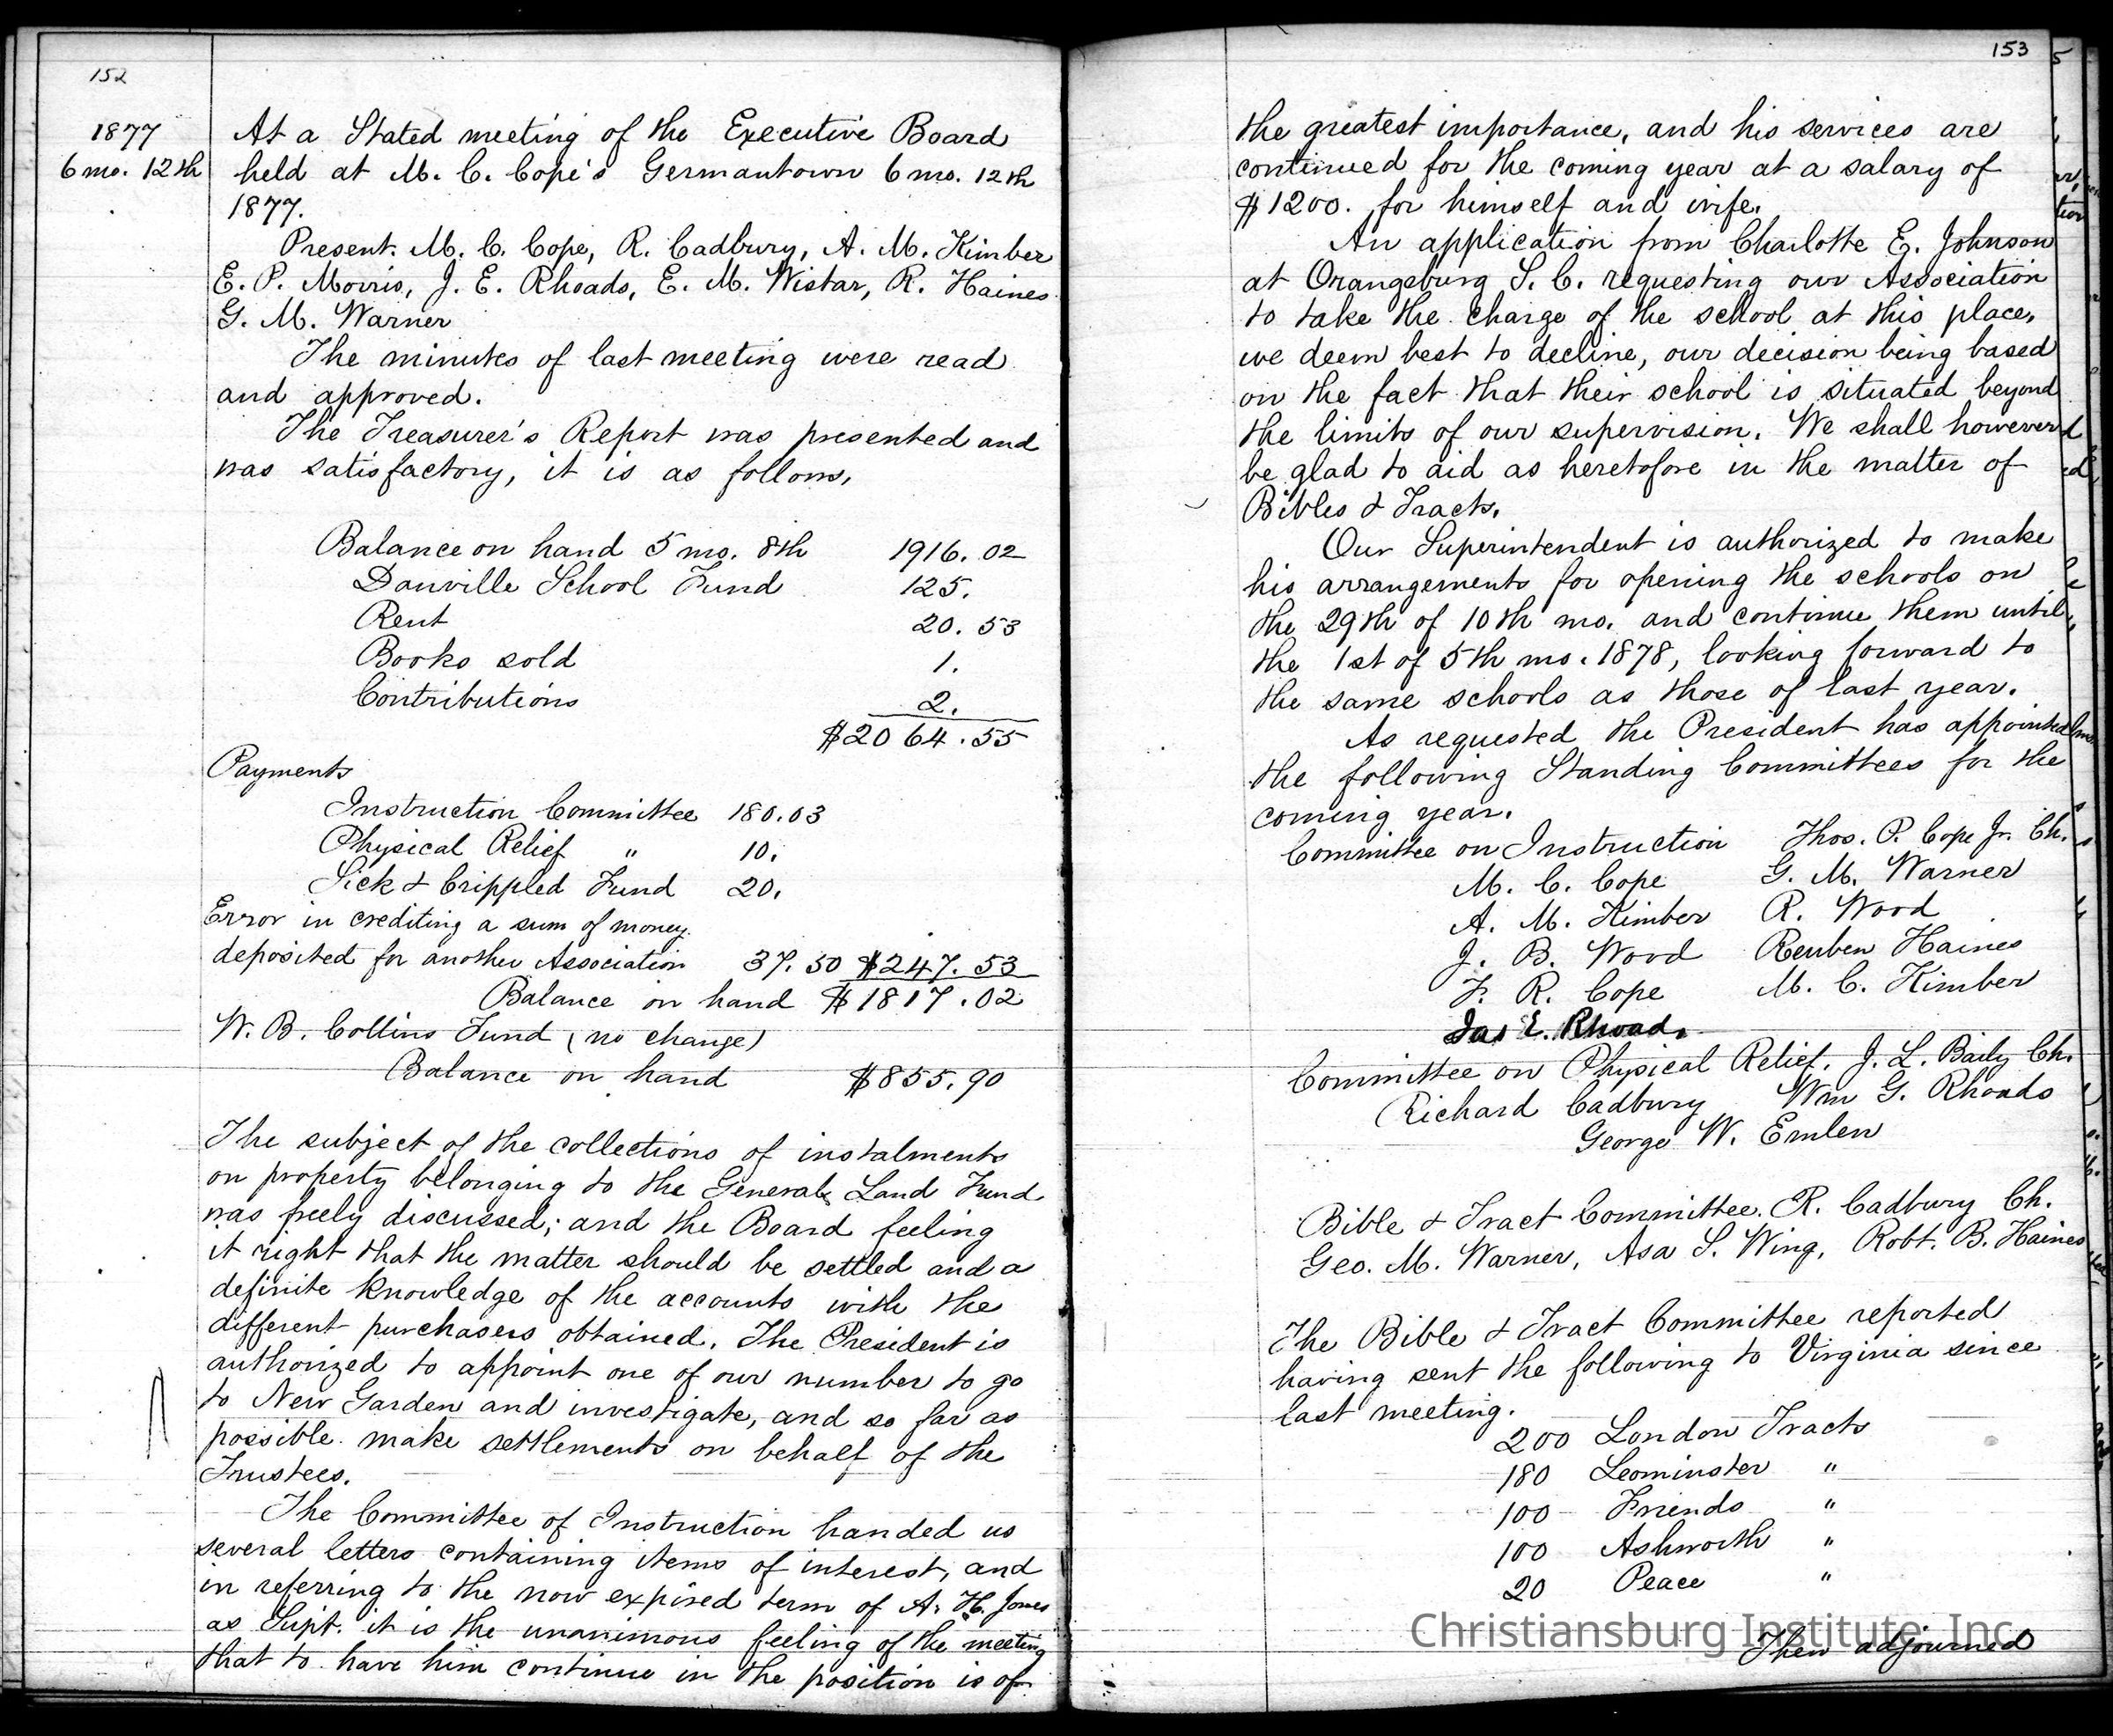 152
1877
6 mo. 12th
At a Stated meeting of the Executive Board
held at M. C. Cope's Germantown 6 mo. 12th
1877.
Present. M. C. Cope, R. Cadbury, A. M. Kimber
E. P. Morris, J. E. Rhoads, E. M. Wistar, R. Haines
G. M. Warner
The minutes of last meeting were read
and approved.
The Treasurer's Report was presented and
was satisfactory, it is as follows,
Balance on hand 5 mo. 8th 1916.02
Danville School Fund 125.
Rent 20.53
Books sold 1.
Contributions 2.
$2064.55
Payments
Instruction Committee 180.03
Physical Relief " 10.
Sick & Crippled Fund 20.
Error in crediting a sum of money
deposited for another Association 37.50 $247.53
Balance on hand $1817.02
W. B. Collins Fund (no change)
Balance on hand $855.90
The subject of the collections of instalments
on property belonging to the General Land Fund
was freely discussed; and the Board feeling
it right that the matter should be settled and a
definite knowledge of the accounts with the
different purchasers obtained. The President is
authorized to appoint one of our number to go
to New Garden and investigate, and so far as
possible make settlements on behalf of the
Trustees.
The Committee of Instruction handed us
several letters containing items of interest, and
in referring to the now expired term of A. H. Jones
as Supt. it is the unanimous feeling of the meeting
that to have him continue in the position is of
153
the greatest importance, and his services are
continued for the coming year at a salary of
$1200. for himself and wife.
An application from Charlotte E. Johnson
at Orangeburg S. C. requesting our Association
to take the charge of the school at this place,
we deem best to decline, our decision being based
on the fact that their school is situated beyond
the limits of our supervision. We shall however
be glad to aid as heretofore in the matter of
Bibles & Tracts.
Our Superintendent is authorized to make
his arrangements for opening the schools on
the 29th of 10th mo. and continue them until
the 1st of 5th mo. 1878, looking forward to
the same schools as those of last year.
As requested the President has appointed
the following Standing Committees for the
coming year.
Committee on Instruction Thos. P. Cope Jr. Ch.
M. C. Cope G. M. Warner
A. M. Kimber R. Wood
J. B. Wood Reuben Haines
F. R. Cope M. C. Kimber
Jas E. Rhoads
Committee on Physical Relief. J. L. Baily Ch.
Richard Cadbury Wm G. Rhoads
George W. Emlen
Bible & Tract Committee. R. Cadbury Ch.
Geo. M. Warner, Asa S. Wing, Robt. B. Haines
The Bible & Tract Committee reported
having sent the following to Virginia since
last meeting.
200 London Tracts
180 Leominster "
100 Friends "
100 Ashworth "
20 Peace "
Then adjourned
Christiansburg Institute, Inc.